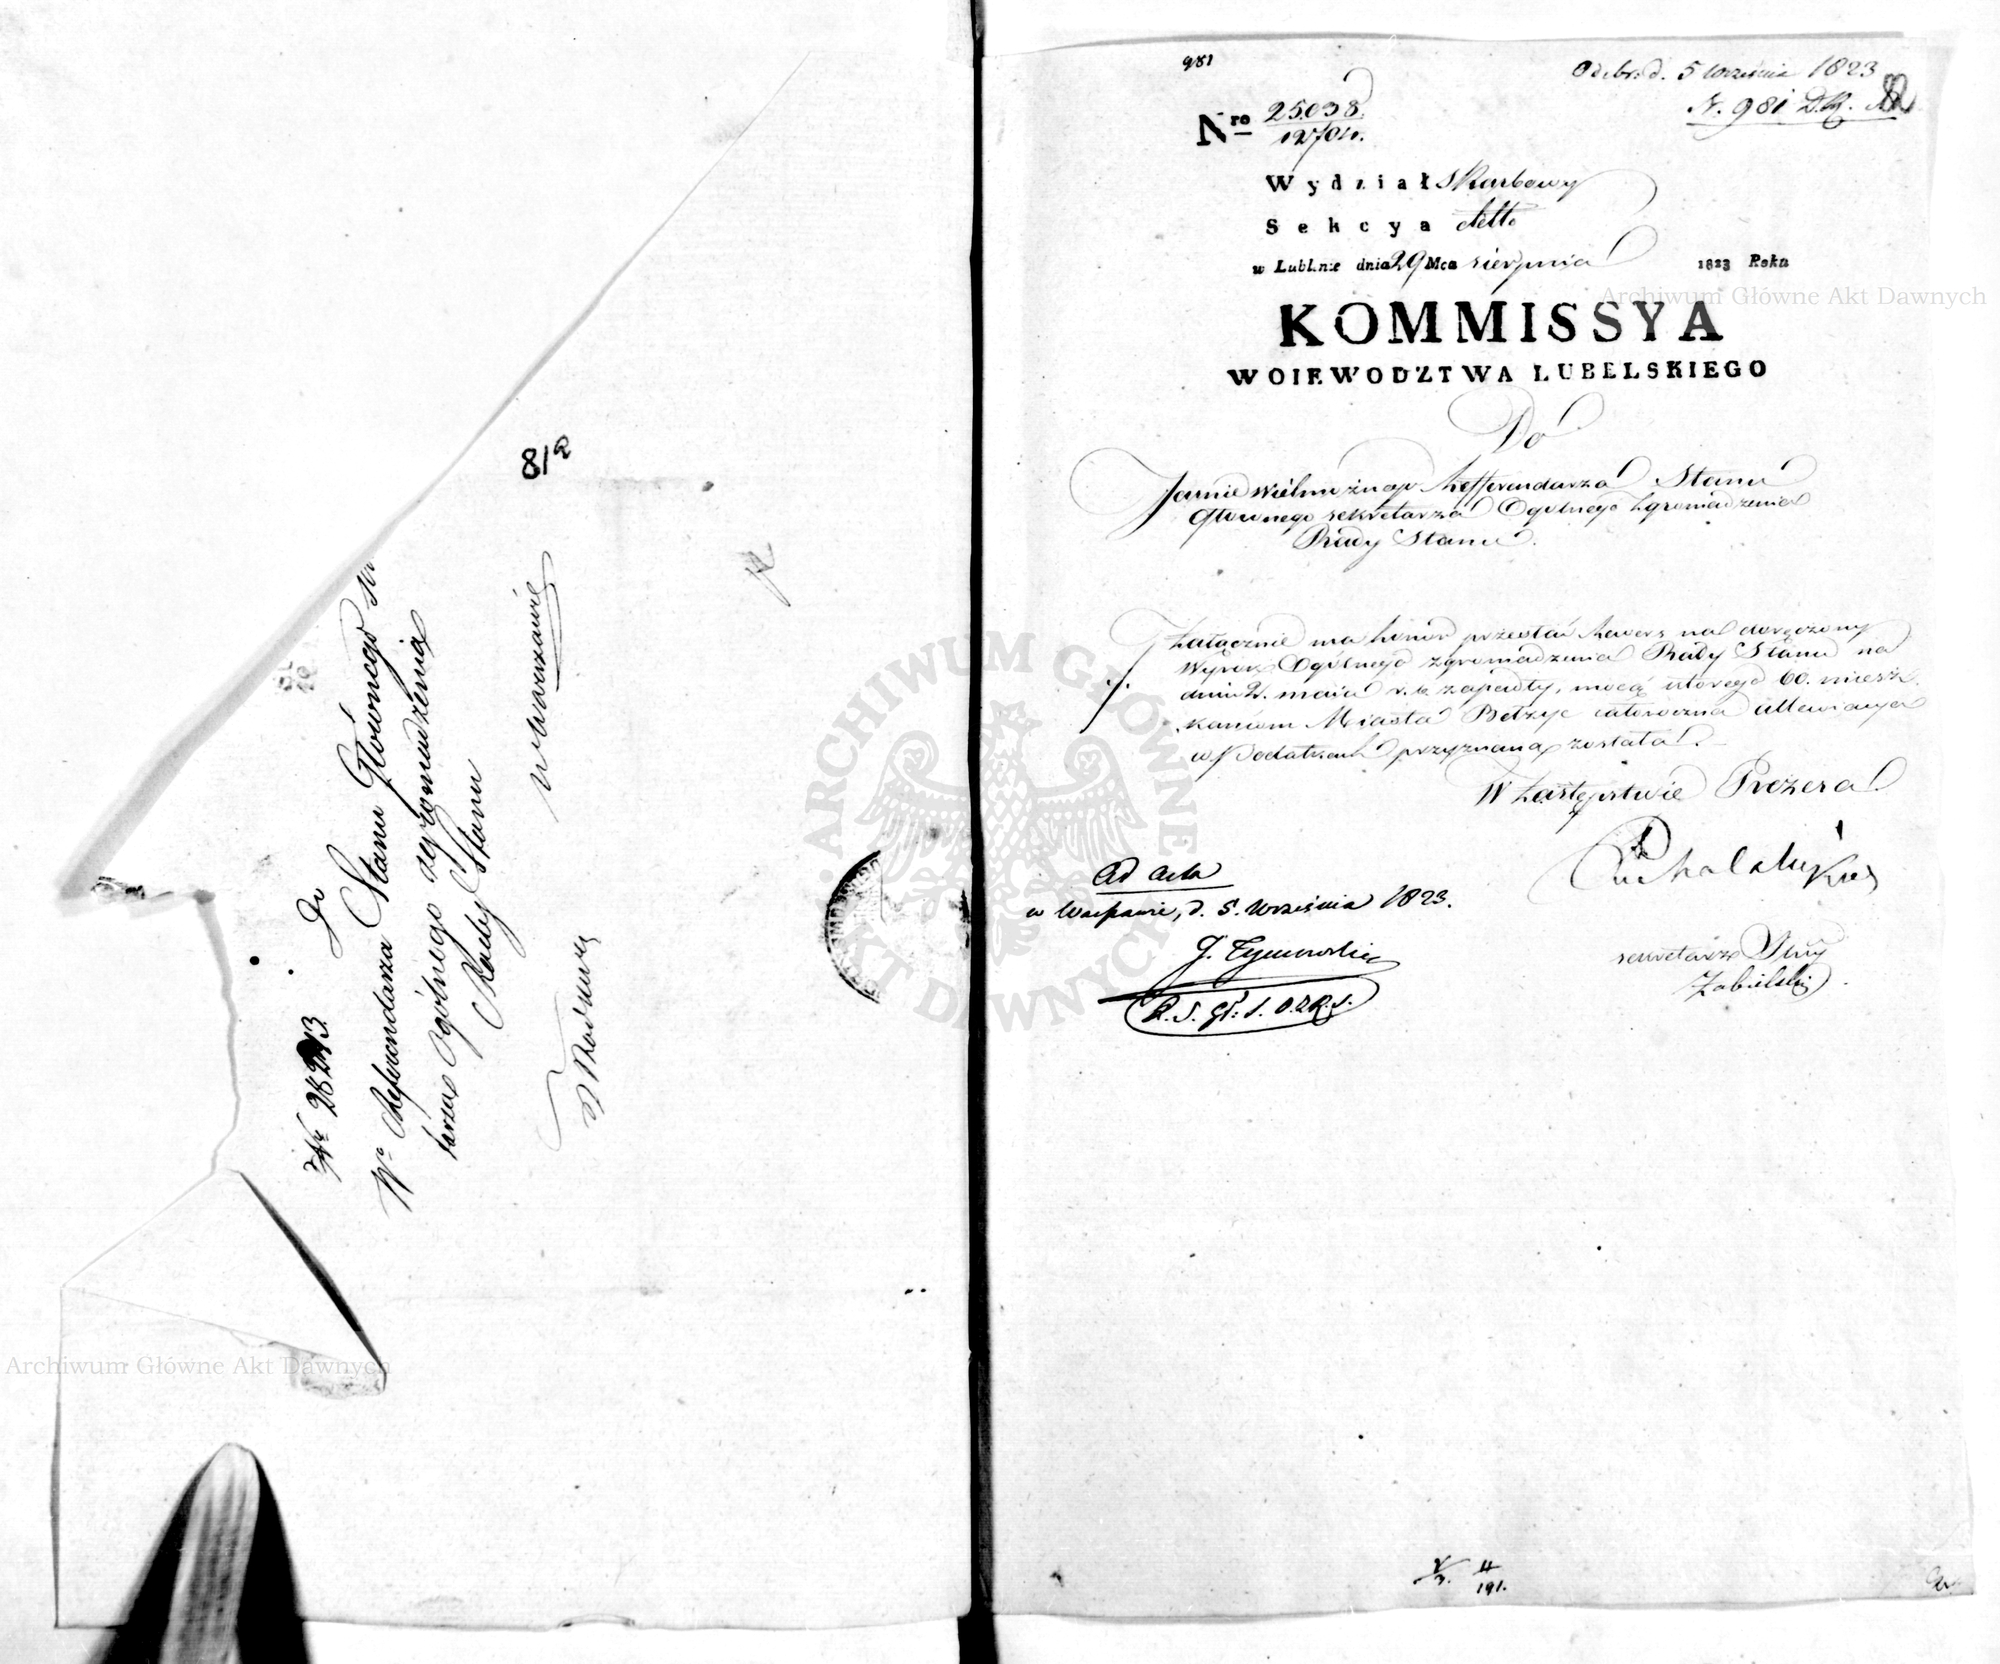 81a
Nr 28243
Do
Wo Referendarza Stanu Głównego Se
tarza Ogólnego zgromadzenia
Rady Stanu
w Warszawie
981
Odebr: d. 5 Września 1823
N. 981 D.R.
82
Nro 25.038.
12704.
Wydział Skarbowy
Sekcya detto
w Lublnie dnia 29 Mca sierpnia 1823 Roku
KOMMISSYA
WOIEWODZTWA LUBELSKIEGO
Do
Jaśnie Wielmożnego Refferendarza Stanu
Głownego sekretarza Ogolnego Zgromadzenia
Rady Stanu.
Załącznie ma honor przesłać Rewers na doręczony
Wyrok Ogólnego zgromadzenia Rady Stanu na
dniu 2. maia r. b. zapadły, mocą ktorego 60. miesz
kańcom Miasta Bełzyc całoroczna allewiacya
w Podatkach przyznaną została.
W Zastępstwie Prezesa
Puchalski
sekretarz Jlny
Zabielski
Ad acta
w Warszawie, d. 5. Września 1823.
J. Tymowski
R. S. Gł: S. O. Z. R. S.
II
191.
Archiwum Główne Akt Dawnych
Archiwum Główne Akt Dawnych
ARCHIWUM GŁÓWNE AKT DAWNYCH